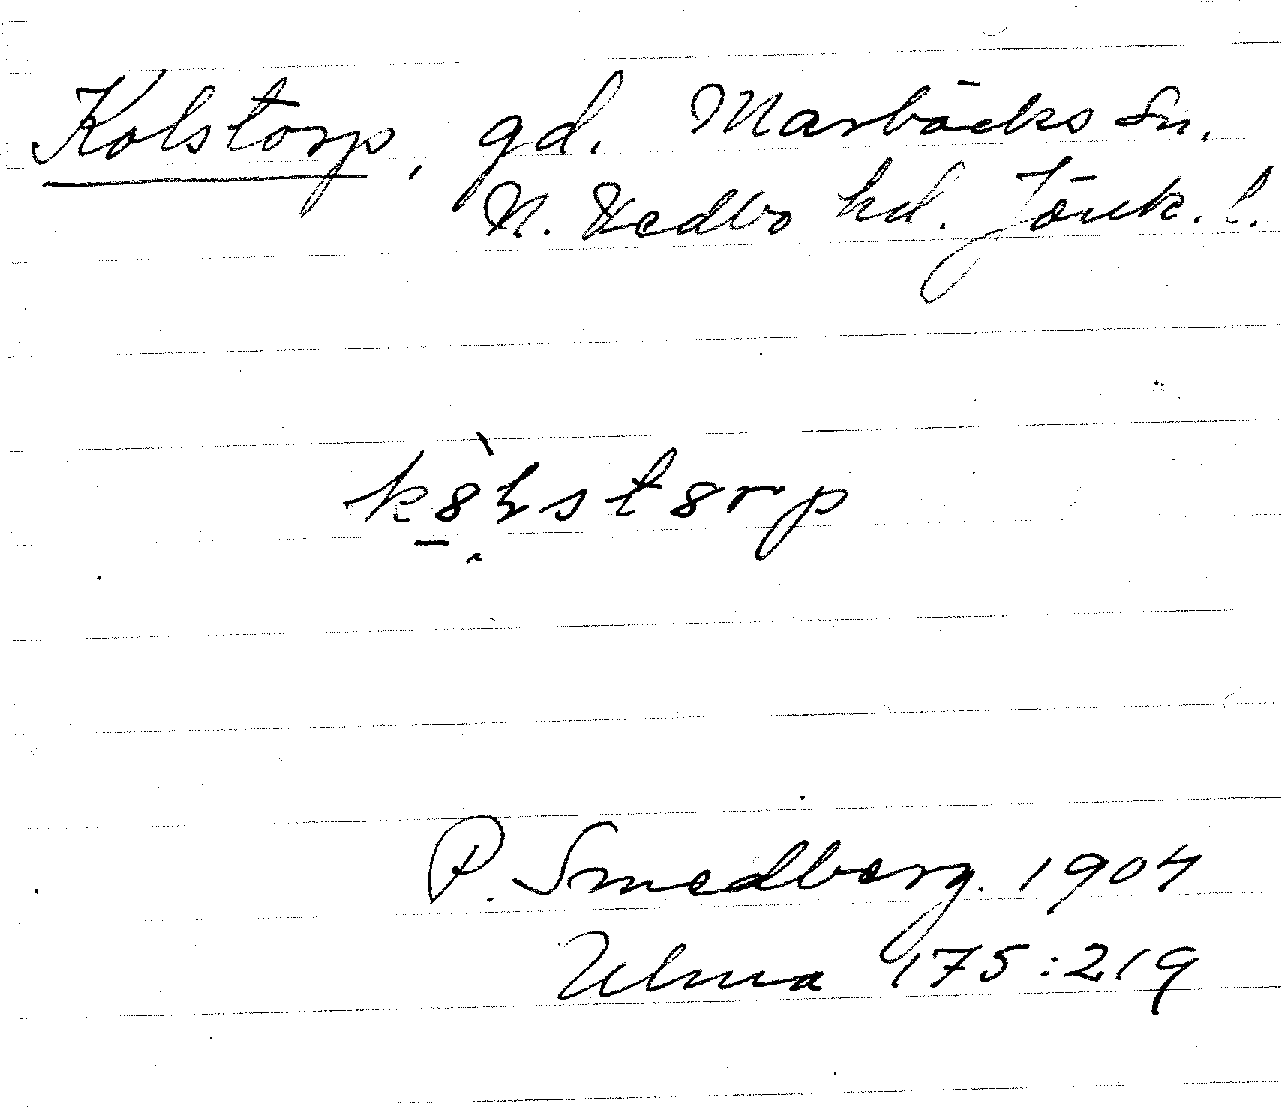 Kolstorp, gd. Marbäcks sn.
N. Vedbo hd. Jönk. l.
P. Smedberg. 1904
Ulma 175:219